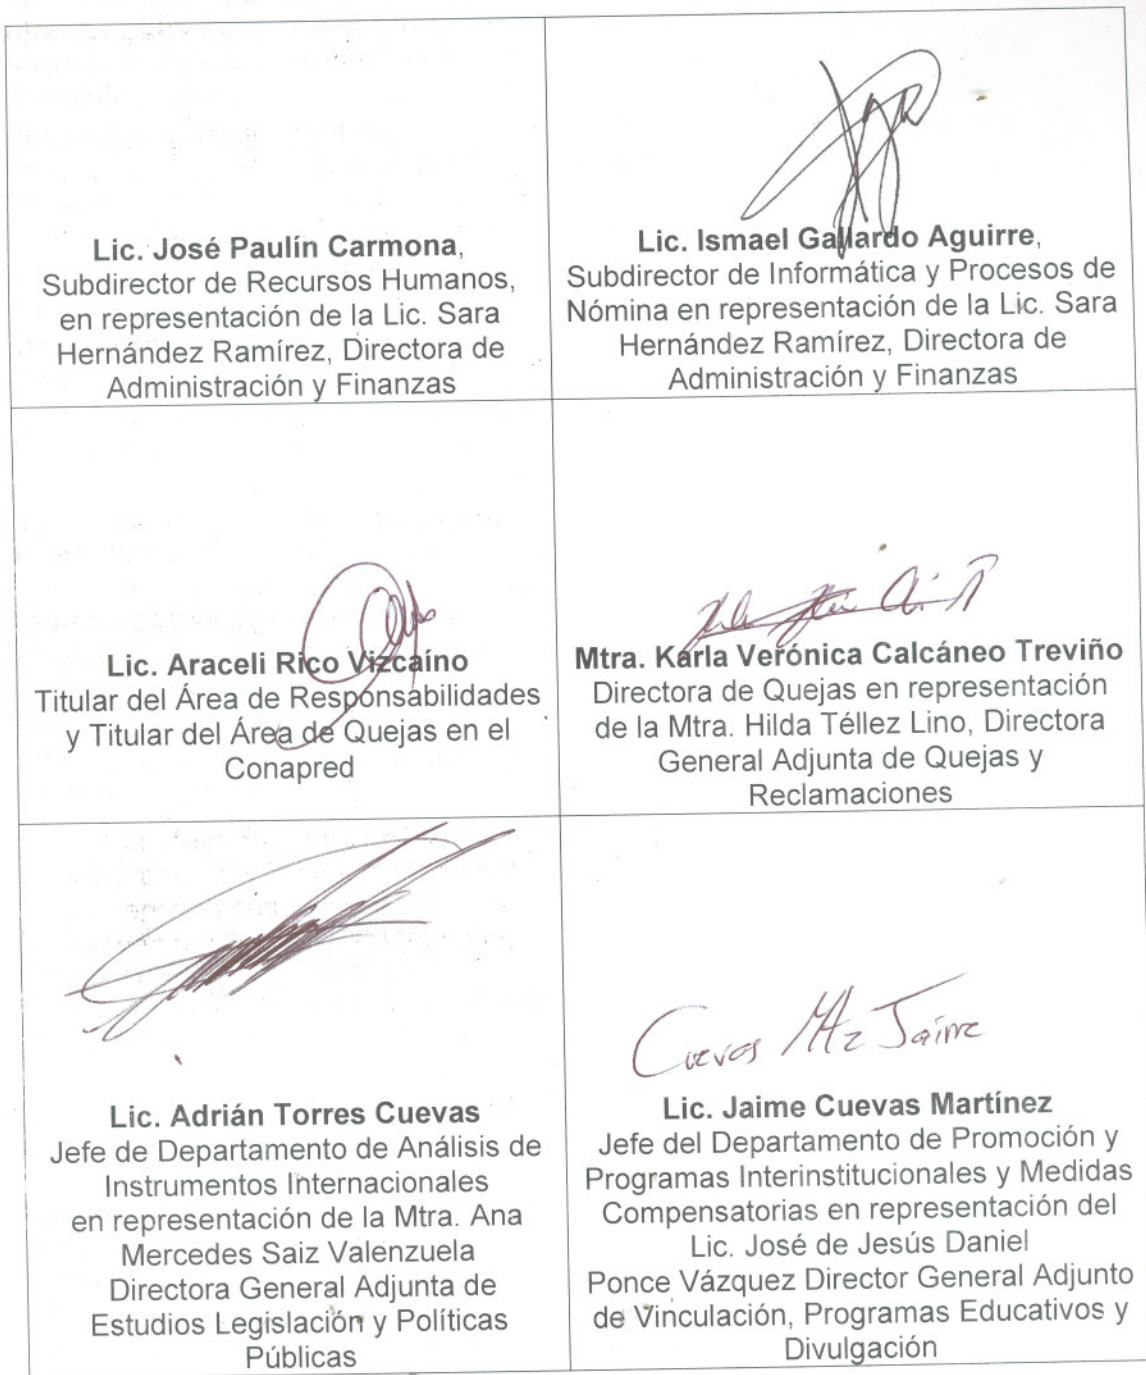 Lic. José Paulín Carmona,
Subdirector de Recursos Humanos,
en representación de la Lic. Sara
Hernández Ramírez, Directora de
Administración y Finanzas
Lic. Ismael Gallardo Aguirre,
Subdirector de Informática y Procesos de
Nómina en representación de la Lic. Sara
Hernández Ramírez, Directora de
Administración y Finanzas
Lic. Araceli Rico Vizcaíno
Titular del Área de Responsabilidades
y Titular del Área de Quejas en el
Conapred
Mtra. Karla Verónica Calcáneo Treviño
Directora de Quejas en representación
de la Mtra. Hilda Téllez Lino, Directora
General Adjunta de Quejas y
Reclamaciones
Lic. Adrián Torres Cuevas
Jefe de Departamento de Análisis de
Instrumentos Internacionales
en representación de la Mtra. Ana
Mercedes Saiz Valenzuela
Directora General Adjunta de
Estudios Legislación y Políticas
Públicas
Cuevas Mtz Jaime
Lic. Jaime Cuevas Martínez
Jefe del Departamento de Promoción y
Programas Interinstitucionales y Medidas
Compensatorias en representación del
Lic. José de Jesús Daniel
Ponce Vázquez Director General Adjunto
de Vinculación, Programas Educativos y
Divulgación